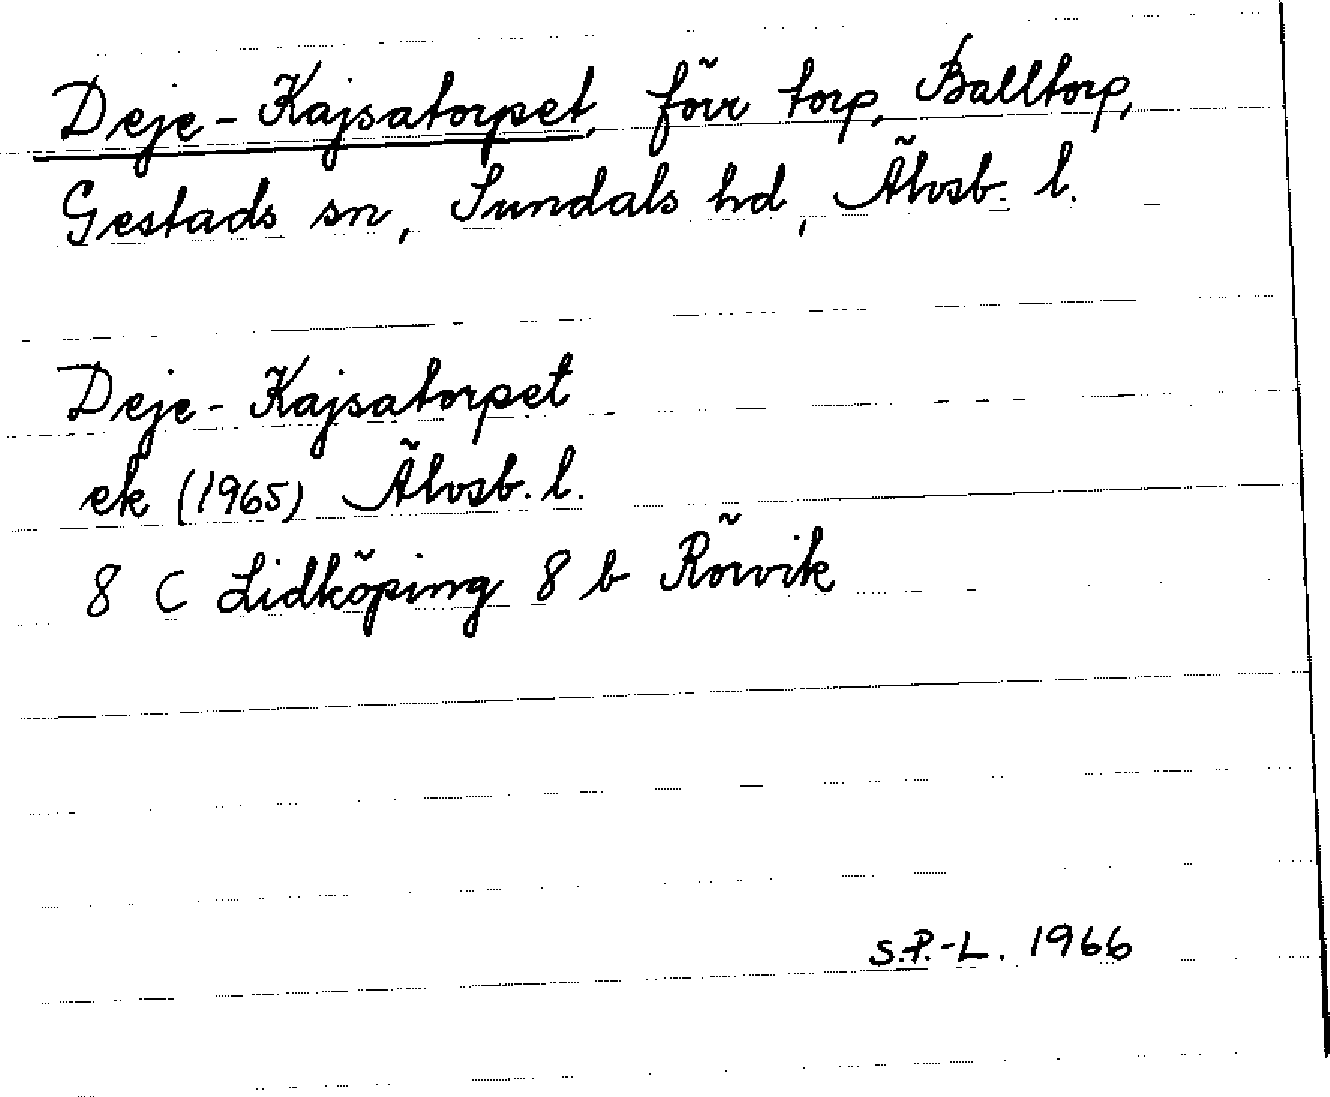 Deje-Kajsatorpet, förr torp, Balltorp,
Gestads sn, Sundals hd, Älvsb. l.
Deje-Kajsatorpet
ek (1965) Älvsb. l.
8 C Lidköping 8 b Rörvik
S.P.-L. 1966